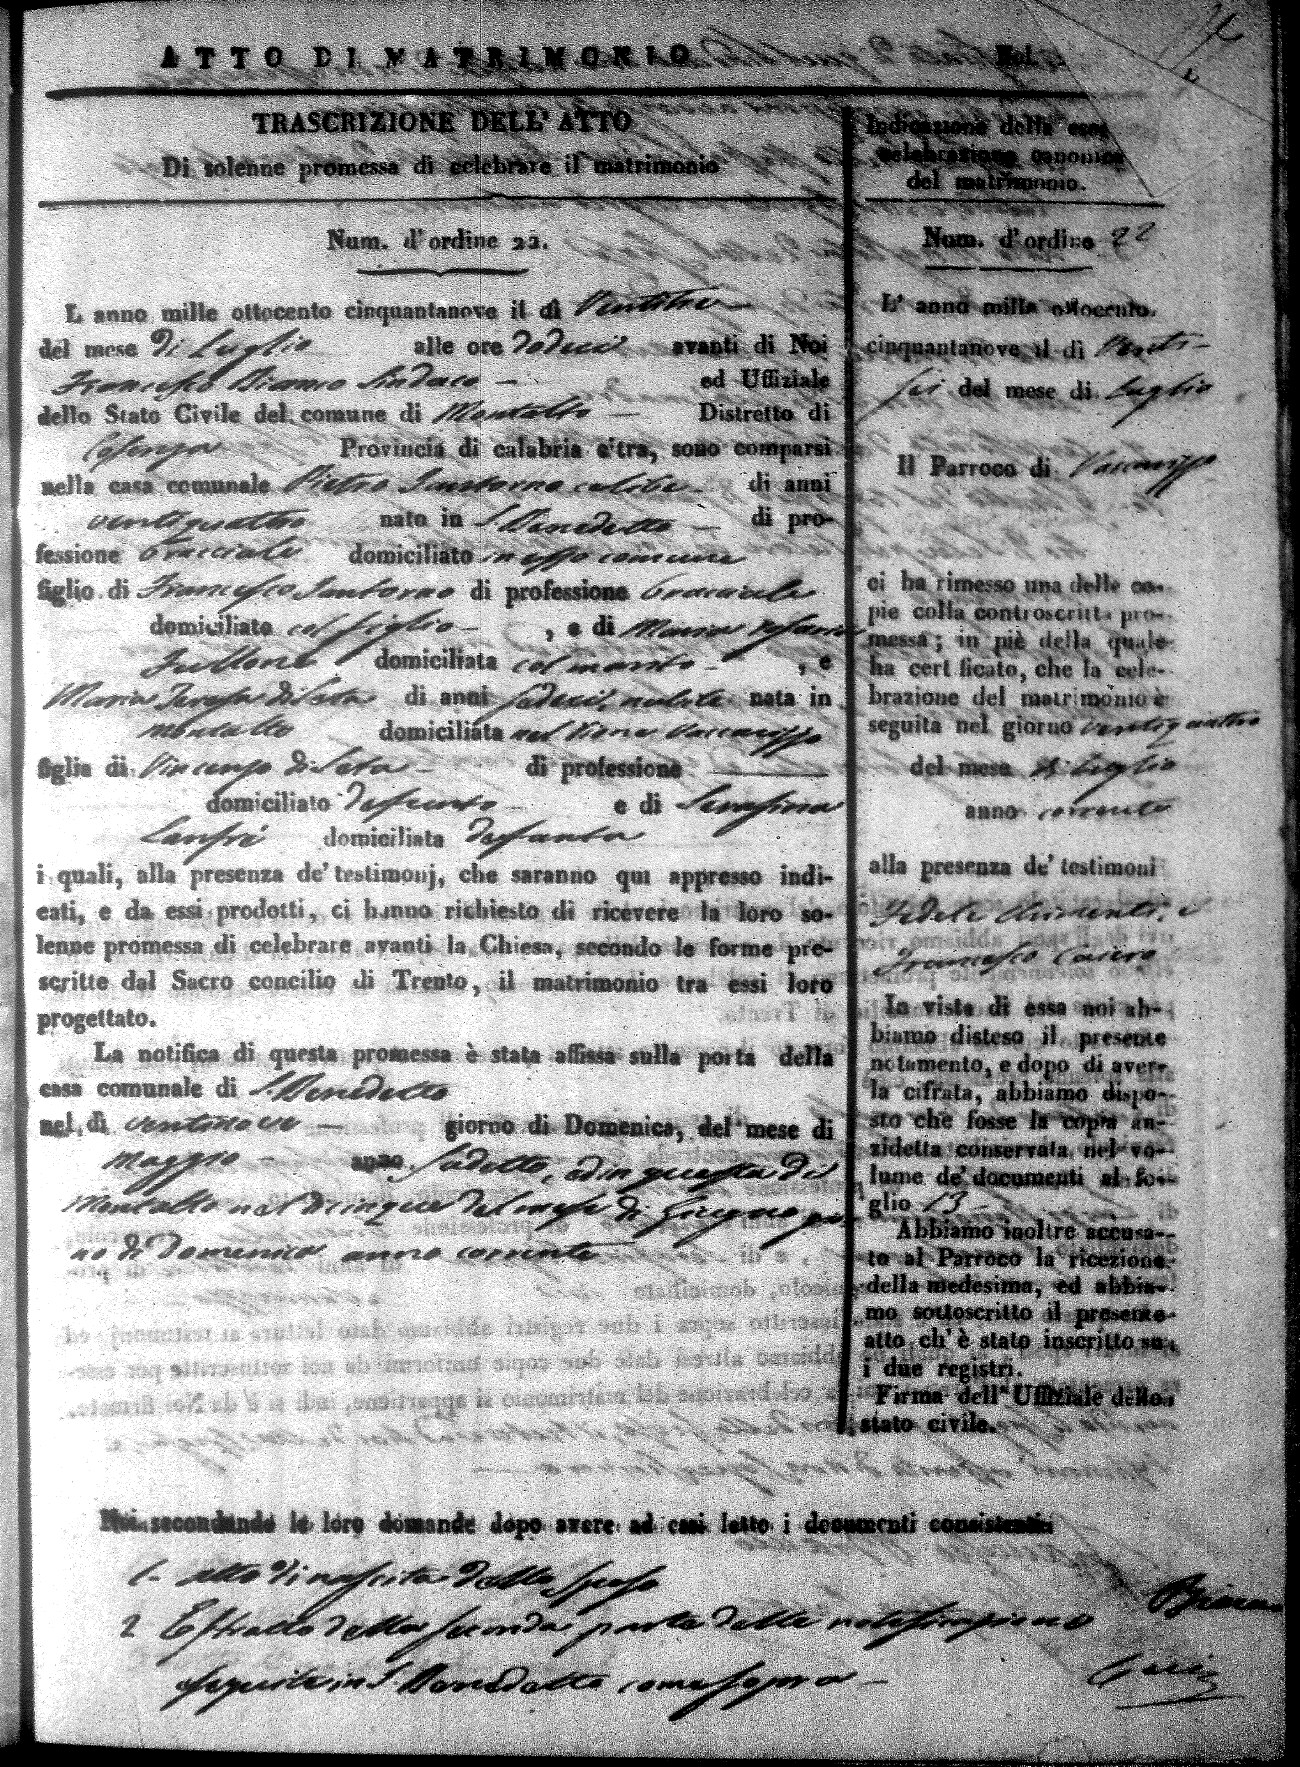 ATTO DI MATRIMONIO
TRASCRIZIONE DELL' ATTO
Di solenne promessa di celebrare il matrimonio
Num. d'ordine 22.
L anno mille ottocento cinquantanove il dì Ventitre
del mese di Luglio alle ore dodeci avanti di Noi
Francesco Bianco Sindaco ed Uffiziale
dello Stato Civile del comune di Montalto Distretto di
Cosenza Provincia di calabria citra, sono comparsi
nella casa comunale Pietro Santoro celibe di anni
ventiquattro nato in S. Benedetto di pro-
fessione bracciale domiciliato in esso comune
figlio di Francesco Santoro di professione bracciale
domiciliato col figlio , e di Maria
domiciliata col marito , e
Maria Teresa di Seta di anni sedeci, nubile nata in
Montalto domiciliata nel Vaccarizzo
figlia di Vincenzo di Seta di professione
domiciliato defunto e di Serafina
Lanfrè domiciliata defunta
i quali, alla presenza de' testimonj, che saranno qui appresso indi-
cati, e da essi prodotti, ci hanno richiesto di ricevere la loro so-
lenne promessa di celebrare avanti la Chiesa, secondo le forme pre-
scritte dal Sacro concilio di Trento, il matrimonio tra essi loro
progettato.
La notifica di questa promessa è stata affissa sulla porta della
casa comunale di S. Benedetto
nel dì ventinove giorno di Domenica, del mese di
Maggio anno sudetto, ed in questa di
Montalto nel dì cinque del mese di Giugno gior
no di Domenica anno corrente
Noi secondando le loro domande dopo avere ad essi letto i documenti consistenti
1. Atto di nascita dello sposo
2 Estratto della seconda parte delle notificazioni
eseguite in S. Benedetto come sopra
Indicazione della
celebrazione canonica
del matrimonio.
Num. d'ordine 22
L' anno mille ottocento
cinquantanove il dì Venti-
sei del mese di Luglio
Il Parroco di Vaccarizzo
ci ha rimesso una delle co-
pie colla controscritta pro-
messa; in piè della quale
ha certificato, che la cele-
brazione del matrimonio è
seguita nel giorno ventiquattro
del mese di Luglio
anno corrente
alla presenza de' testimoni
Fedele Chimenti, e
Francesco
In vista di essa noi ab-
biamo disteso il presente
notamento, e dopo di aver-
la cifrata, abbiamo dispo-
sto che fosse la copia an-
zidetta conservata nel vo-
lume de' documenti al fo-
glio 13
Abbiamo inoltre accusa-
to al Parroco la ricezione
della medesima, ed abbia-
mo sottoscritto il presente
atto ch' è stato inscritto su
i due registri.
Firma dell' Uffiziale dello
stato civile.
Bianco